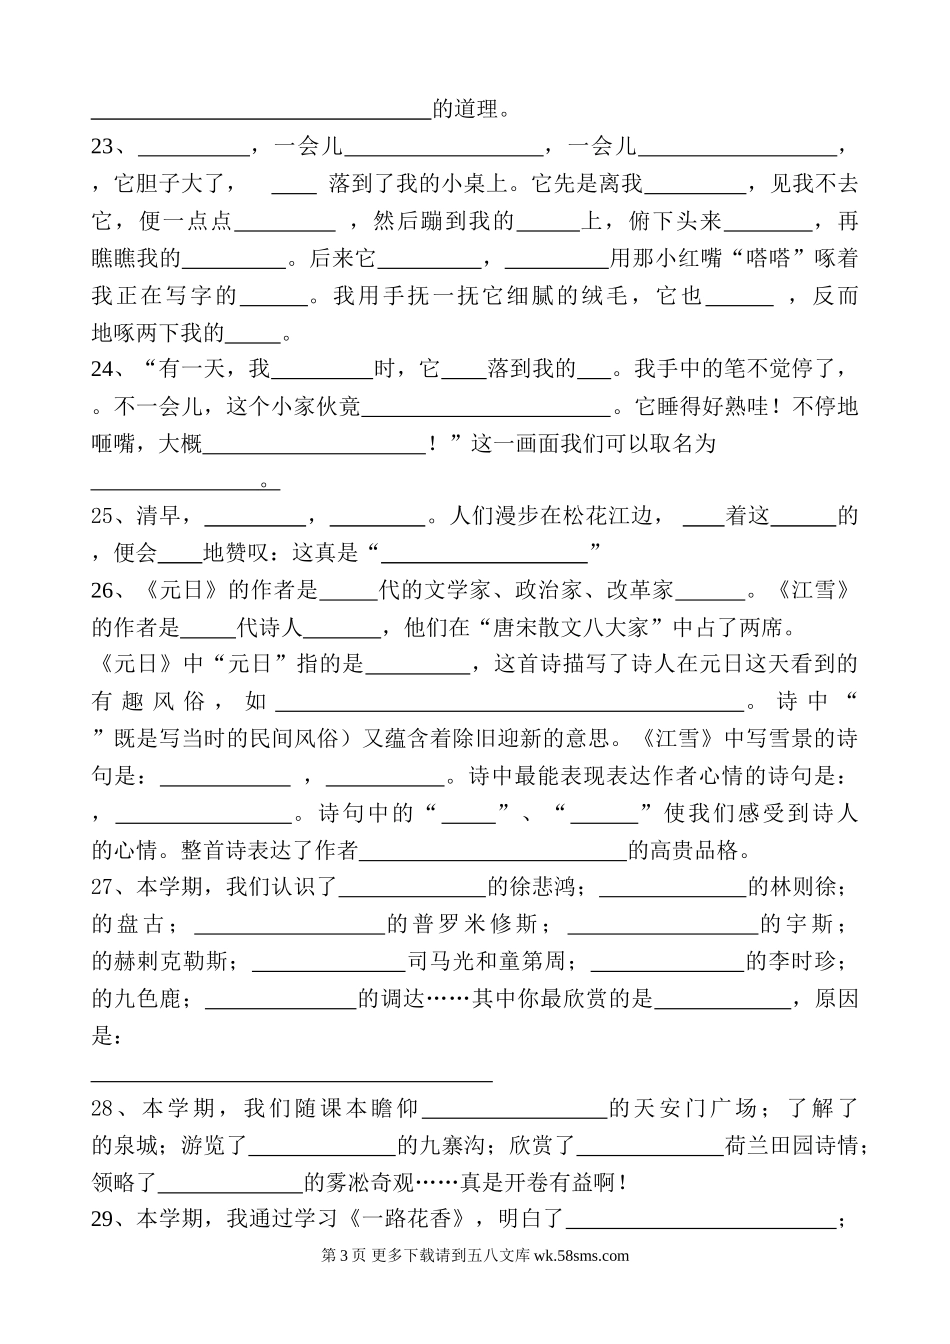 ______________________________的道理。
23、__________，一会儿__________________，一会儿__________________，
，它胆子大了，  ____ 落到了我的小桌上。它先是离我_________，见我不去
它，便一点点_________ ，然后蹦到我的______上，俯下头来________，再
瞧瞧我的_________。后来它_________，_________用那小红嘴“嗒嗒”啄着
我正在写字的______。我用手抚一抚它细腻的绒毛，它也______ ，反而
地啄两下我的_____。
24、“有一天，我_________时，它____落到我的___。我手中的笔不觉停了，
。不一会儿，这个小家伙竟______________________。它睡得好熟哇！不停地
咂嘴，大概____________________！”这一画面我们可以取名为
_______________。
25、清早，_________，_________。人们漫步在松花江边， ____着这______的
，便会____地赞叹：这真是“__________________”
26、《元日》的作者是_____代的文学家、政治家、改革家______。《江雪》
的作者是_____代诗人_______，他们在“唐宋散文八大家”中占了两席。
《元日》中“元日”指的是_________，这首诗描写了诗人在元日这天看到的
有趣风俗，如__________________________________________。诗中“
”既是写当时的民间风俗）又蕴含着除旧迎新的意思。《江雪》中写雪景的诗
句是：____________ ，___________。诗中最能表现表达作者心情的诗句是：
，________________。诗句中的“_____”、“______”使我们感受到诗人
的心情。整首诗表达了作者________________________的高贵品格。
27、本学期，我们认识了_____________的徐悲鸿；_____________的林则徐；
的盘古；_________________的普罗米修斯；_________________的宇斯；
的赫剌克勒斯；______________司马光和童第周；______________的李时珍；
的九色鹿；______________的调达……其中你最欣赏的是____________，原因
是：
____________________________________
28、本学期，我们随课本瞻仰________________的天安门广场；了解了
的泉城；游览了_____________的九寨沟；欣赏了_____________荷兰田园诗情；
领略了_____________的雾凇奇观……真是开卷有益啊！
29、本学期，我通过学习《一路花香》，明白了________________________；
第 3 页 更多下载请到五八文库 wk.58sms.com